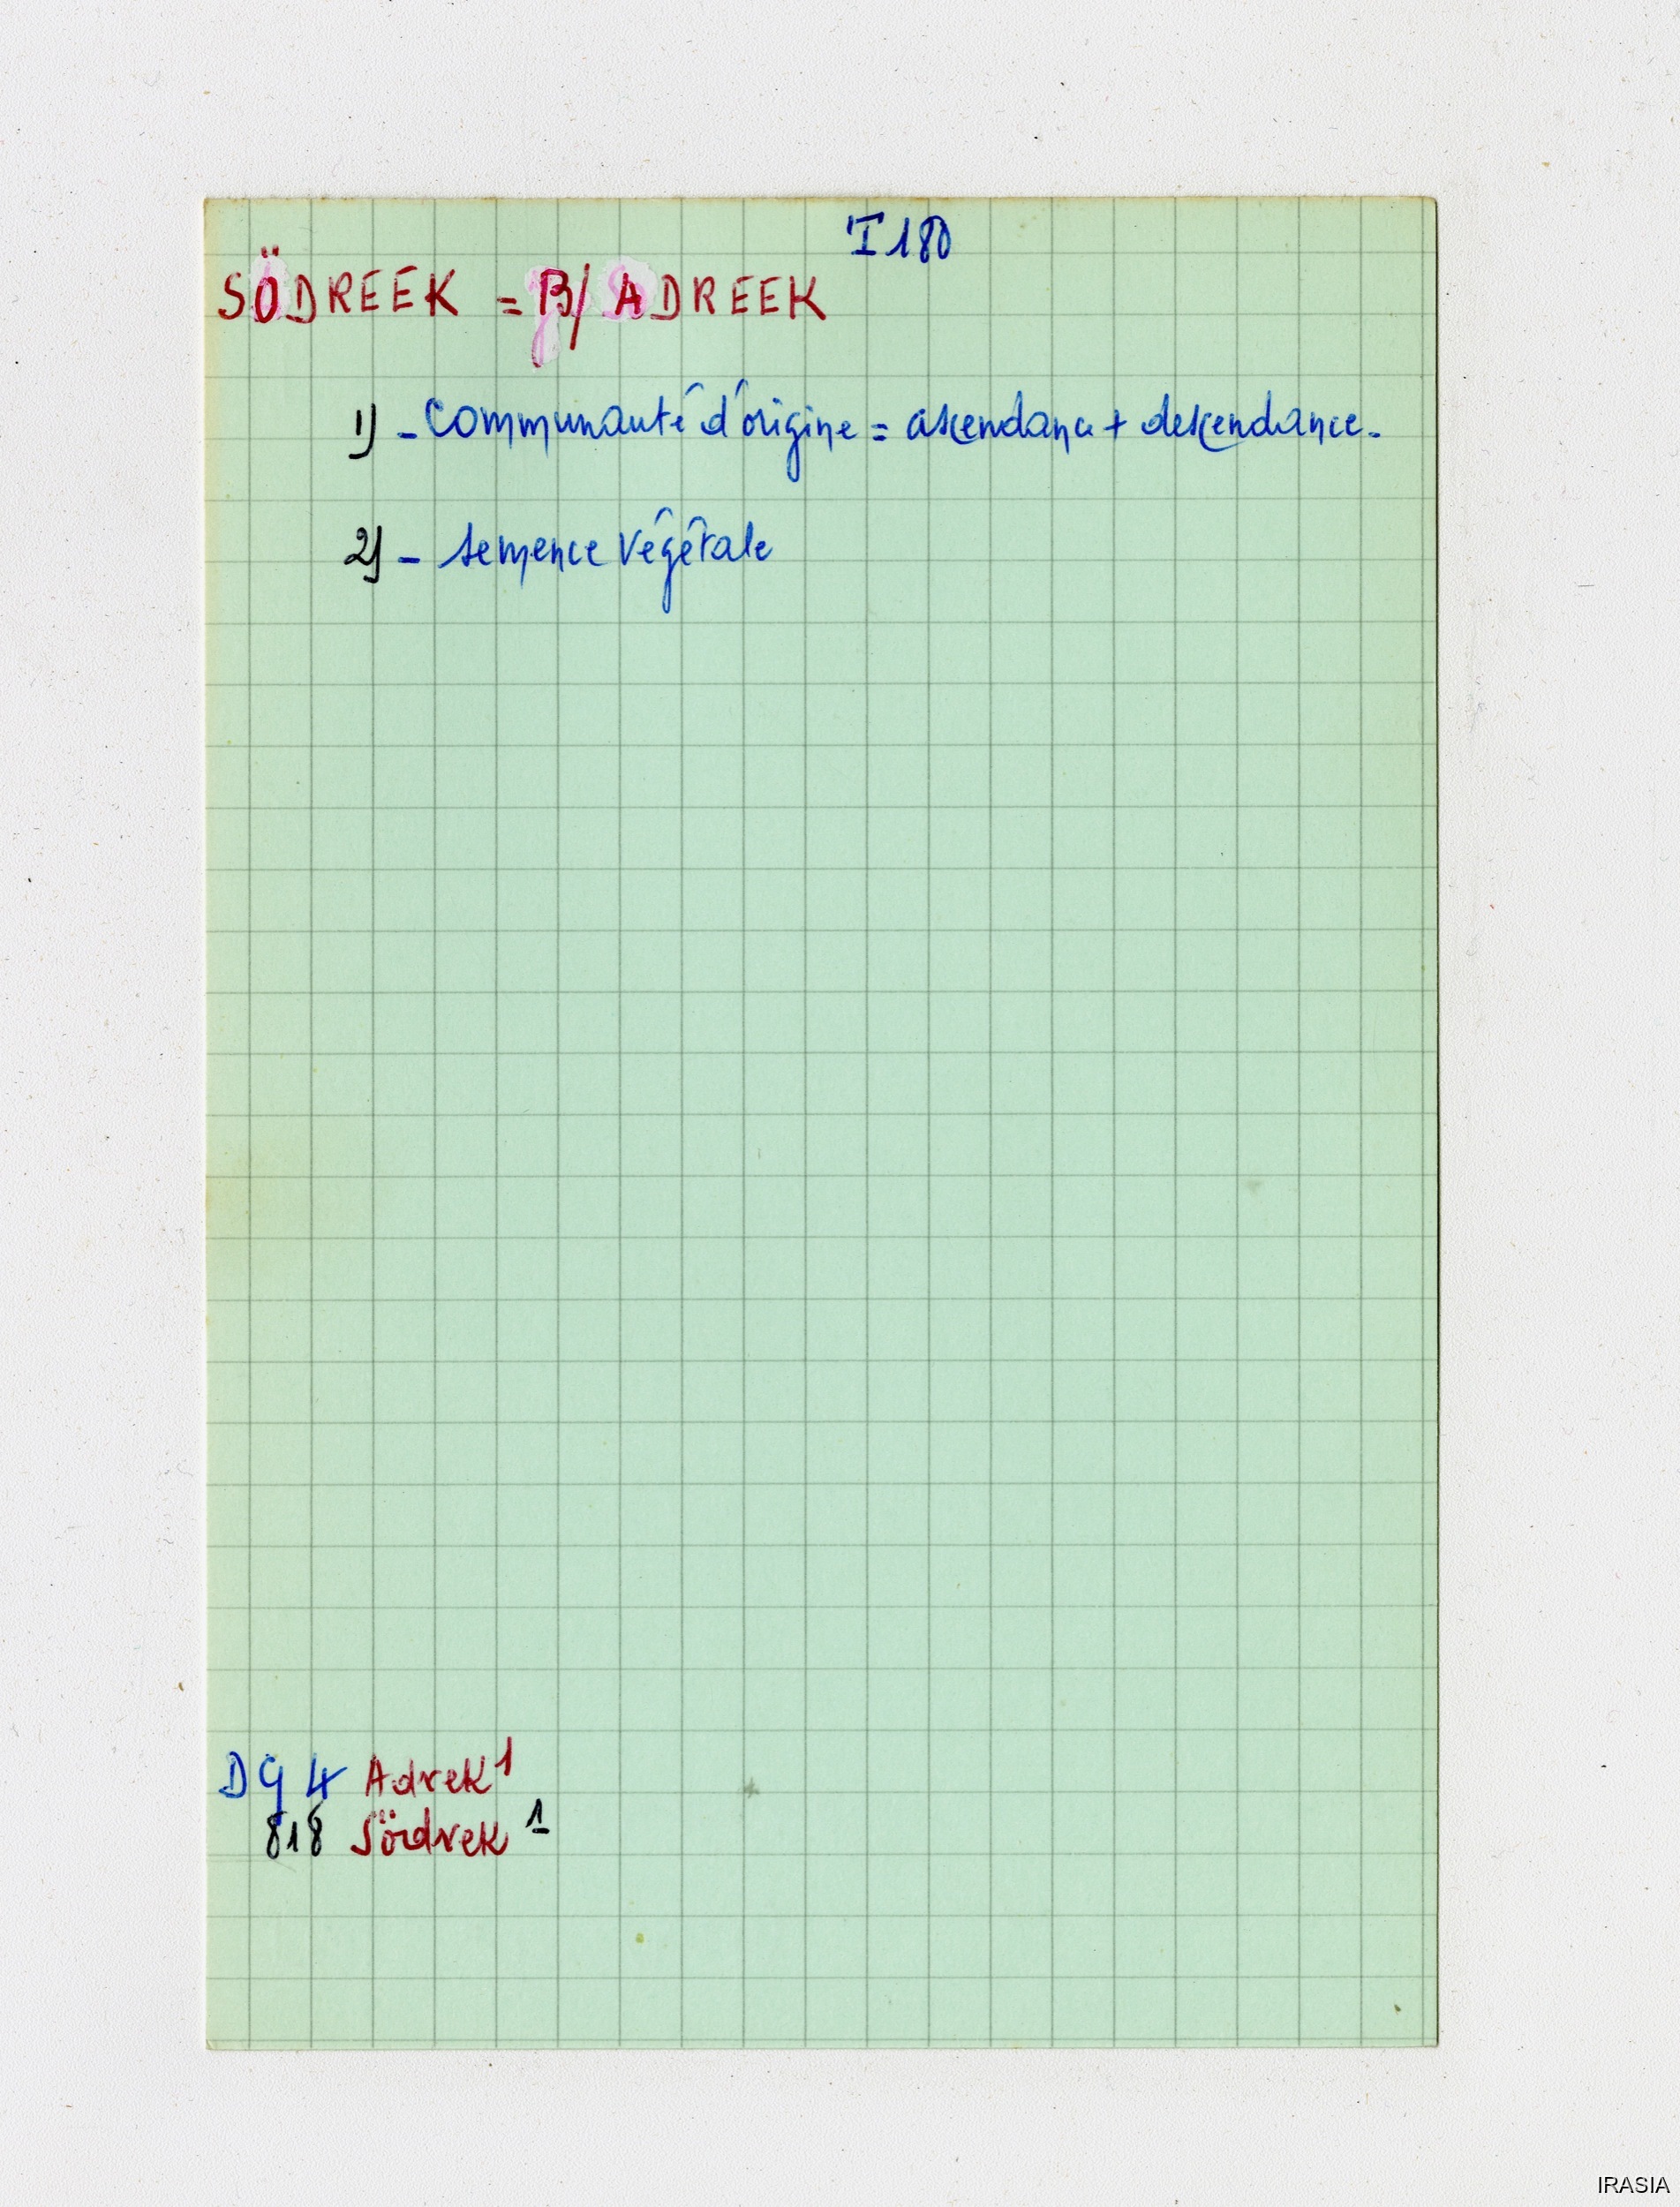 I 180
SÖDREEK = B/ ADREEK
1) - Communauté d'origine = ascendance + descendance.
2) - semence végétale
DG 4 Adrek 1
818 Södrek 1
IRASIA